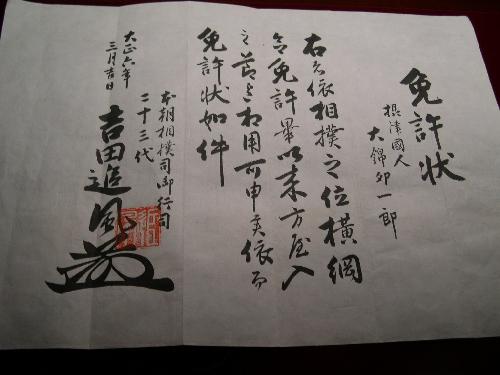 免許状
摂津國人
大錦卯一郎
右者依相撲之位横綱
令免許畢以来方屋入
之節迄相用可申候依而
免許状如件
大正六年
三月吉日
本朝相撲司御行司
二十三代
吉田追風